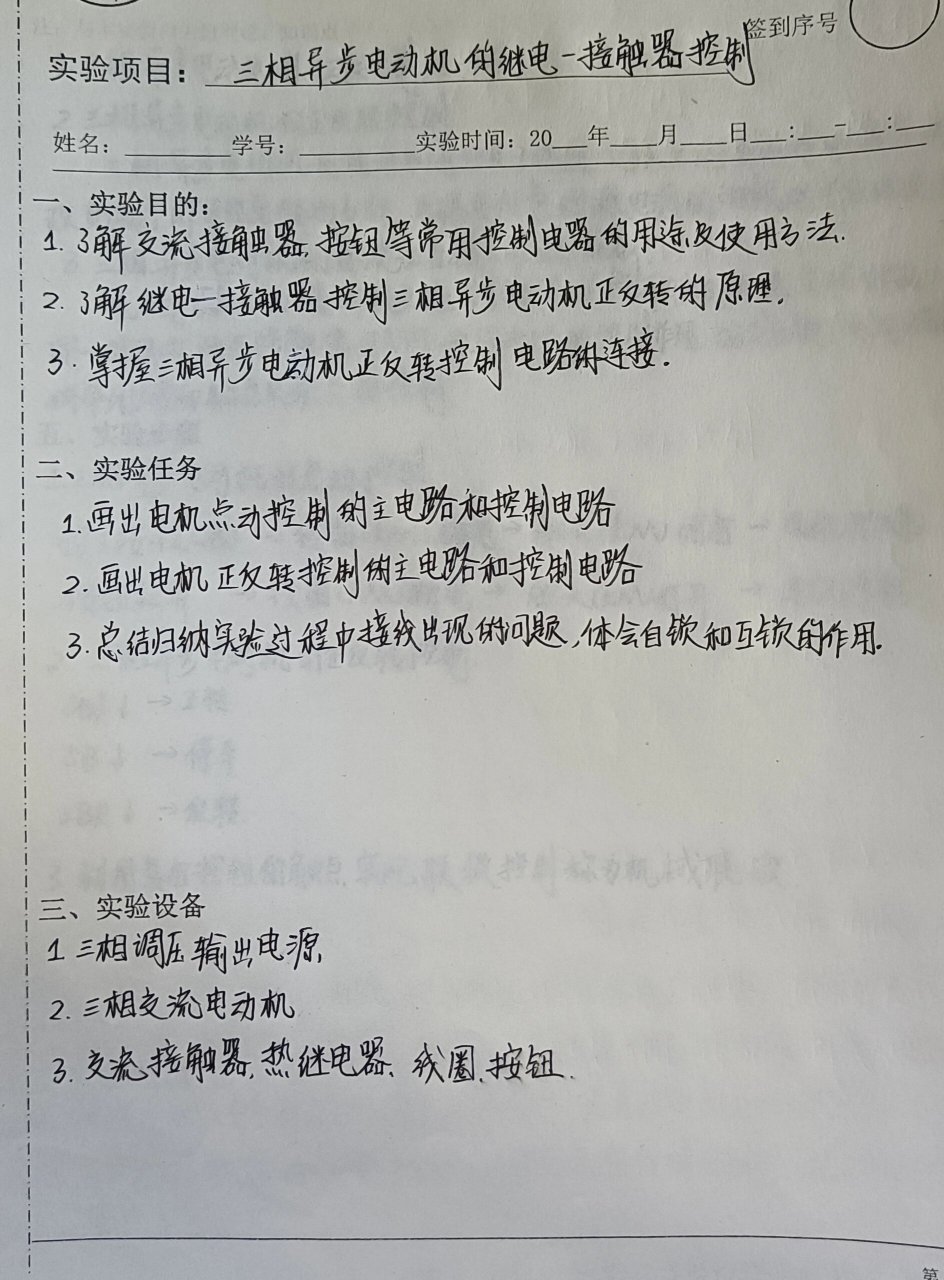 签到序号
实验项目：三相异步电动机的继电-接触器控制
姓名：________学号：________实验时间：20__年___月___日__:__-__:__
一、实验目的：
1. 了解交流接触器、按钮等常用控制电器的用途及使用方法.
2. 了解继电-接触器控制三相异步电动机正反转的原理.
3. 掌握三相异步电动机正反转控制电路的连接.
二、实验任务
1. 画出电机点动控制的主电路和控制电路
2. 画出电机正反转控制的主电路和控制电路
3. 总结归纳实验过程中接线出现的问题,体会自锁和互锁的作用.
三、实验设备
1 三相调压输出电源,
2. 三相交流电动机
3. 交流接触器、热继电器、线圈、按钮.
第